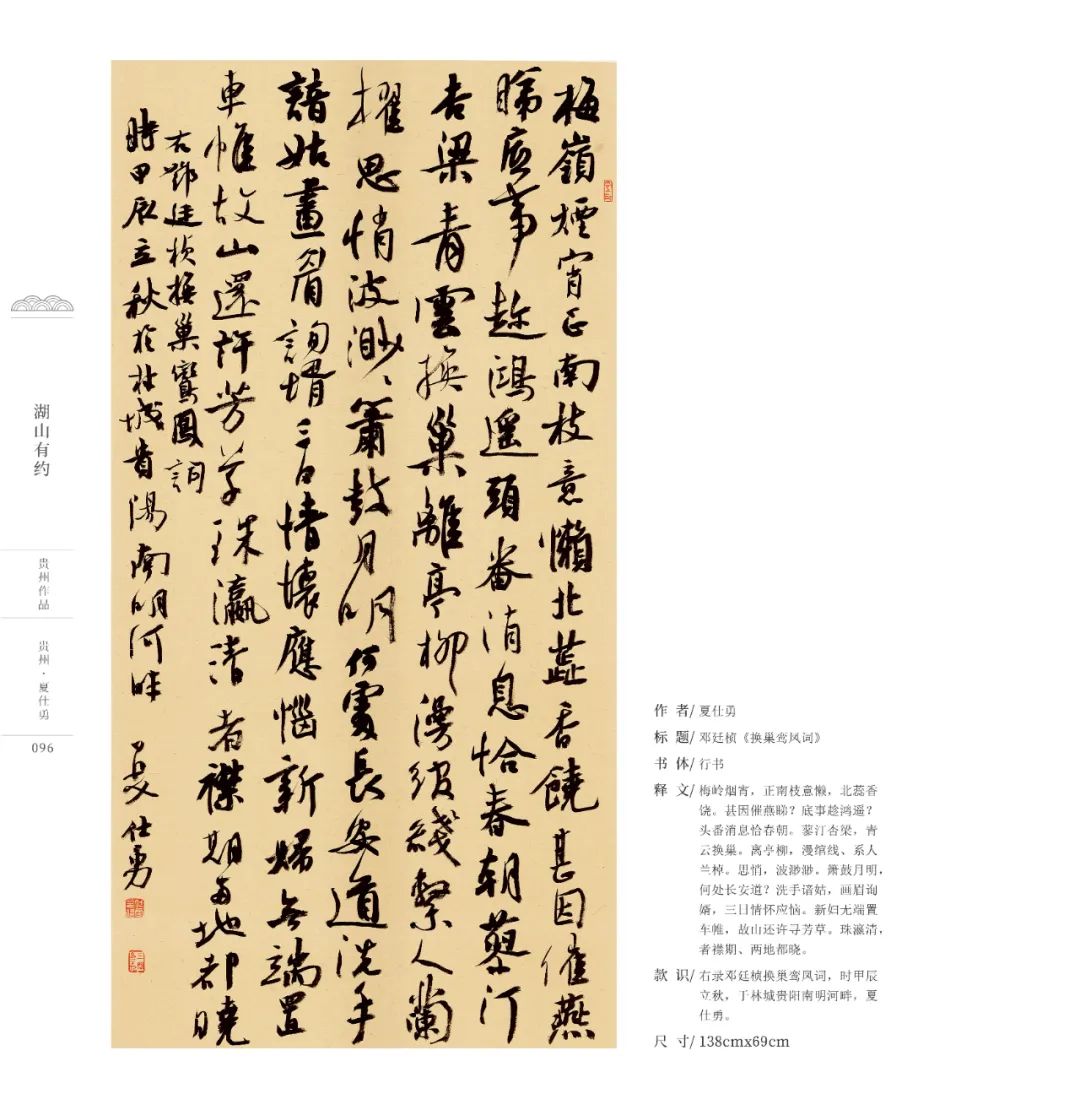 梅嶺煙宵正南枝意懶北蕋香饒甚因催燕
睇底事趂鴻遥頭番消息恰春朝蓼汀
杏梁青雲換巢離亭柳漫綰綫繫人蘭
擢思悄波渺々簫鼓月明何處長安道洗手
諳姑畫眉詢壻三日情懷應惱新婦無端置
車帷故山還許芳草珠瀛清者襟期兩地都曉
右鄧廷楨換巢鸞鳳詞
時甲辰立秋於林城貴陽南明河畔 夏仕勇
湖山有约
贵州作品
贵州·夏仕勇
096
作 者/ 夏仕勇
标 题/ 邓廷桢《换巢鸾凤词》
书 体/ 行书
释 文/ 梅岭烟宵，正南枝意懒，北蕊香
饶。甚因催燕睇？底事趁鸿遥？
头番消息恰春朝。蓼汀杏梁，青
云换巢。离亭柳，漫绾线、系人
兰棹。思悄，波渺渺。箫鼓月明，
何处长安道？洗手谙姑，画眉询
婿，三日情怀应恼。新妇无端置
车帷，故山还许寻芳草。珠瀛清，
者襟期、两地都晓。
款 识/ 右录邓廷桢换巢鸾凤词，时甲辰
立秋，于林城贵阳南明河畔，夏
仕勇。
尺 寸/ 138cmx69cm